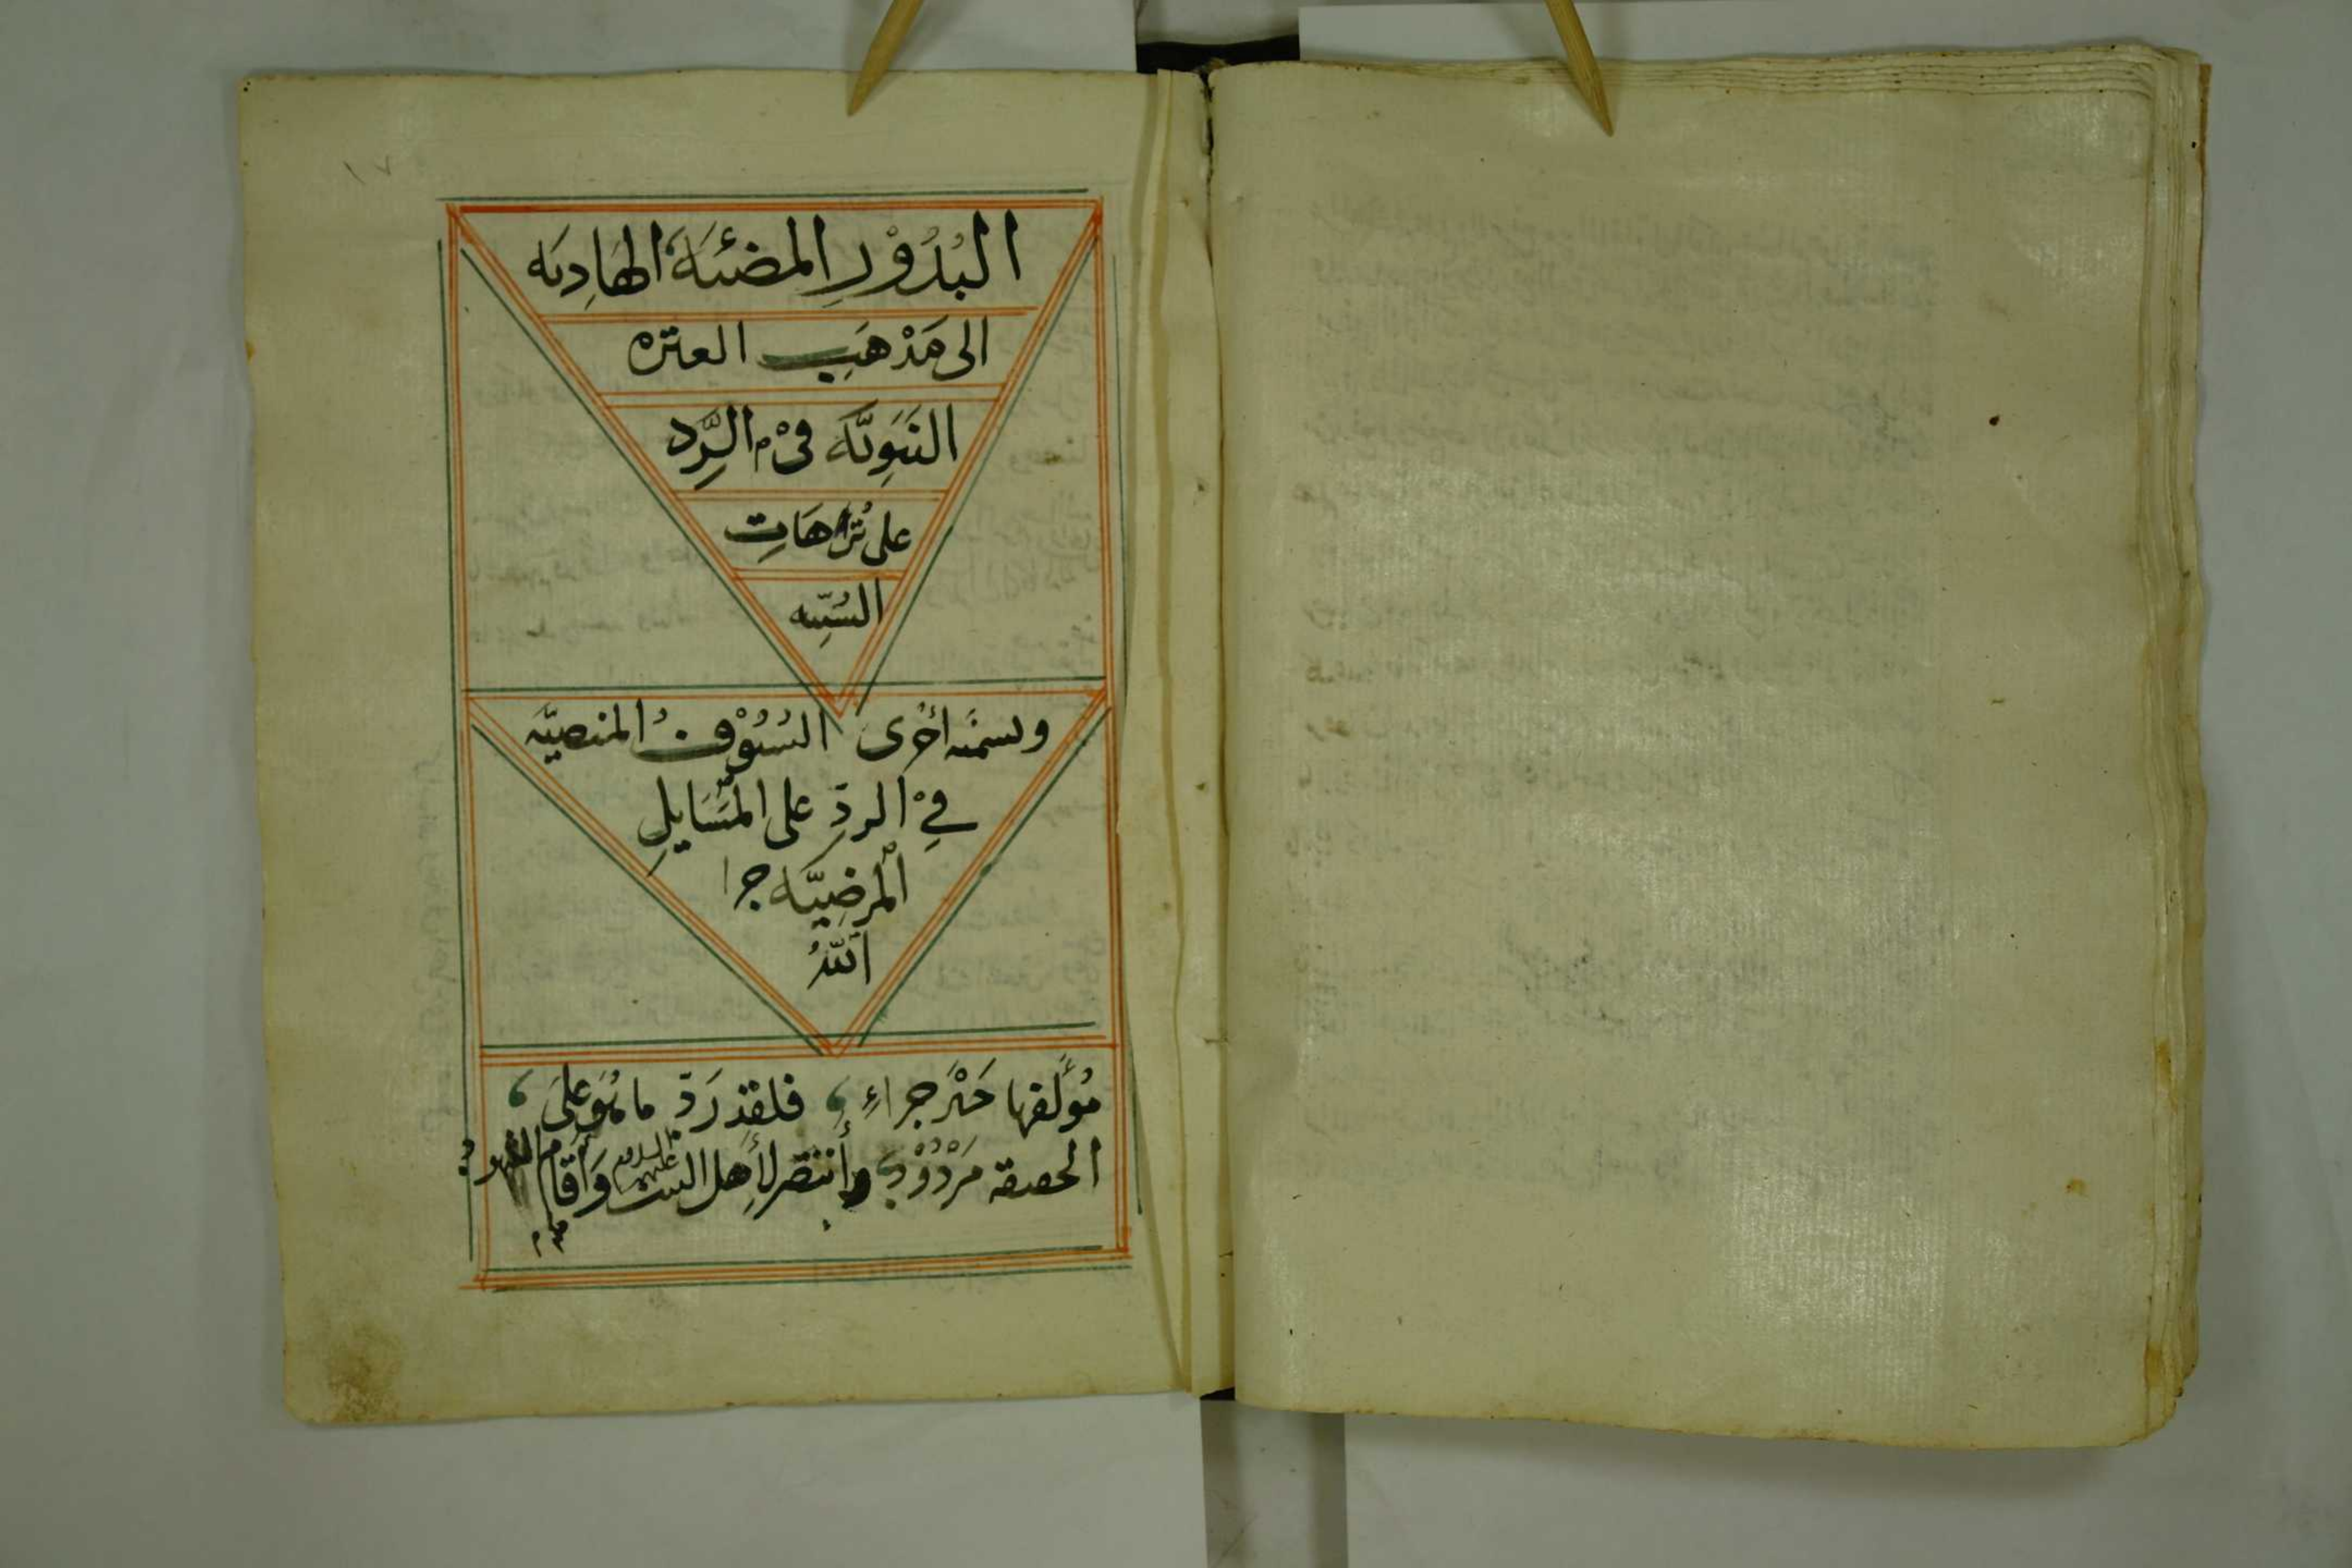 ١٧
البُدُوْرِ المضئيَة الهَادِيَه
الى مَذْهَبِ العتره
النَبَوِيَّه فىْ الرَّد
على تُرَّاهَاتِ
السُنِّيه
وسمَّه أخرى السُيُوْفُ المنضيَّه
فِيْ الردِّ على المَسَايلِ
المرضِيَّه جزا
اللهُ
مُؤَلفها خَيْرَ جزاءٍ، فلقد رَدّ ما هُوَ علىَ،
الحقيقه مَرْدُوْدٌ وأنتصَر لأهل البيت عليهم السلام وَأقَام الشهود